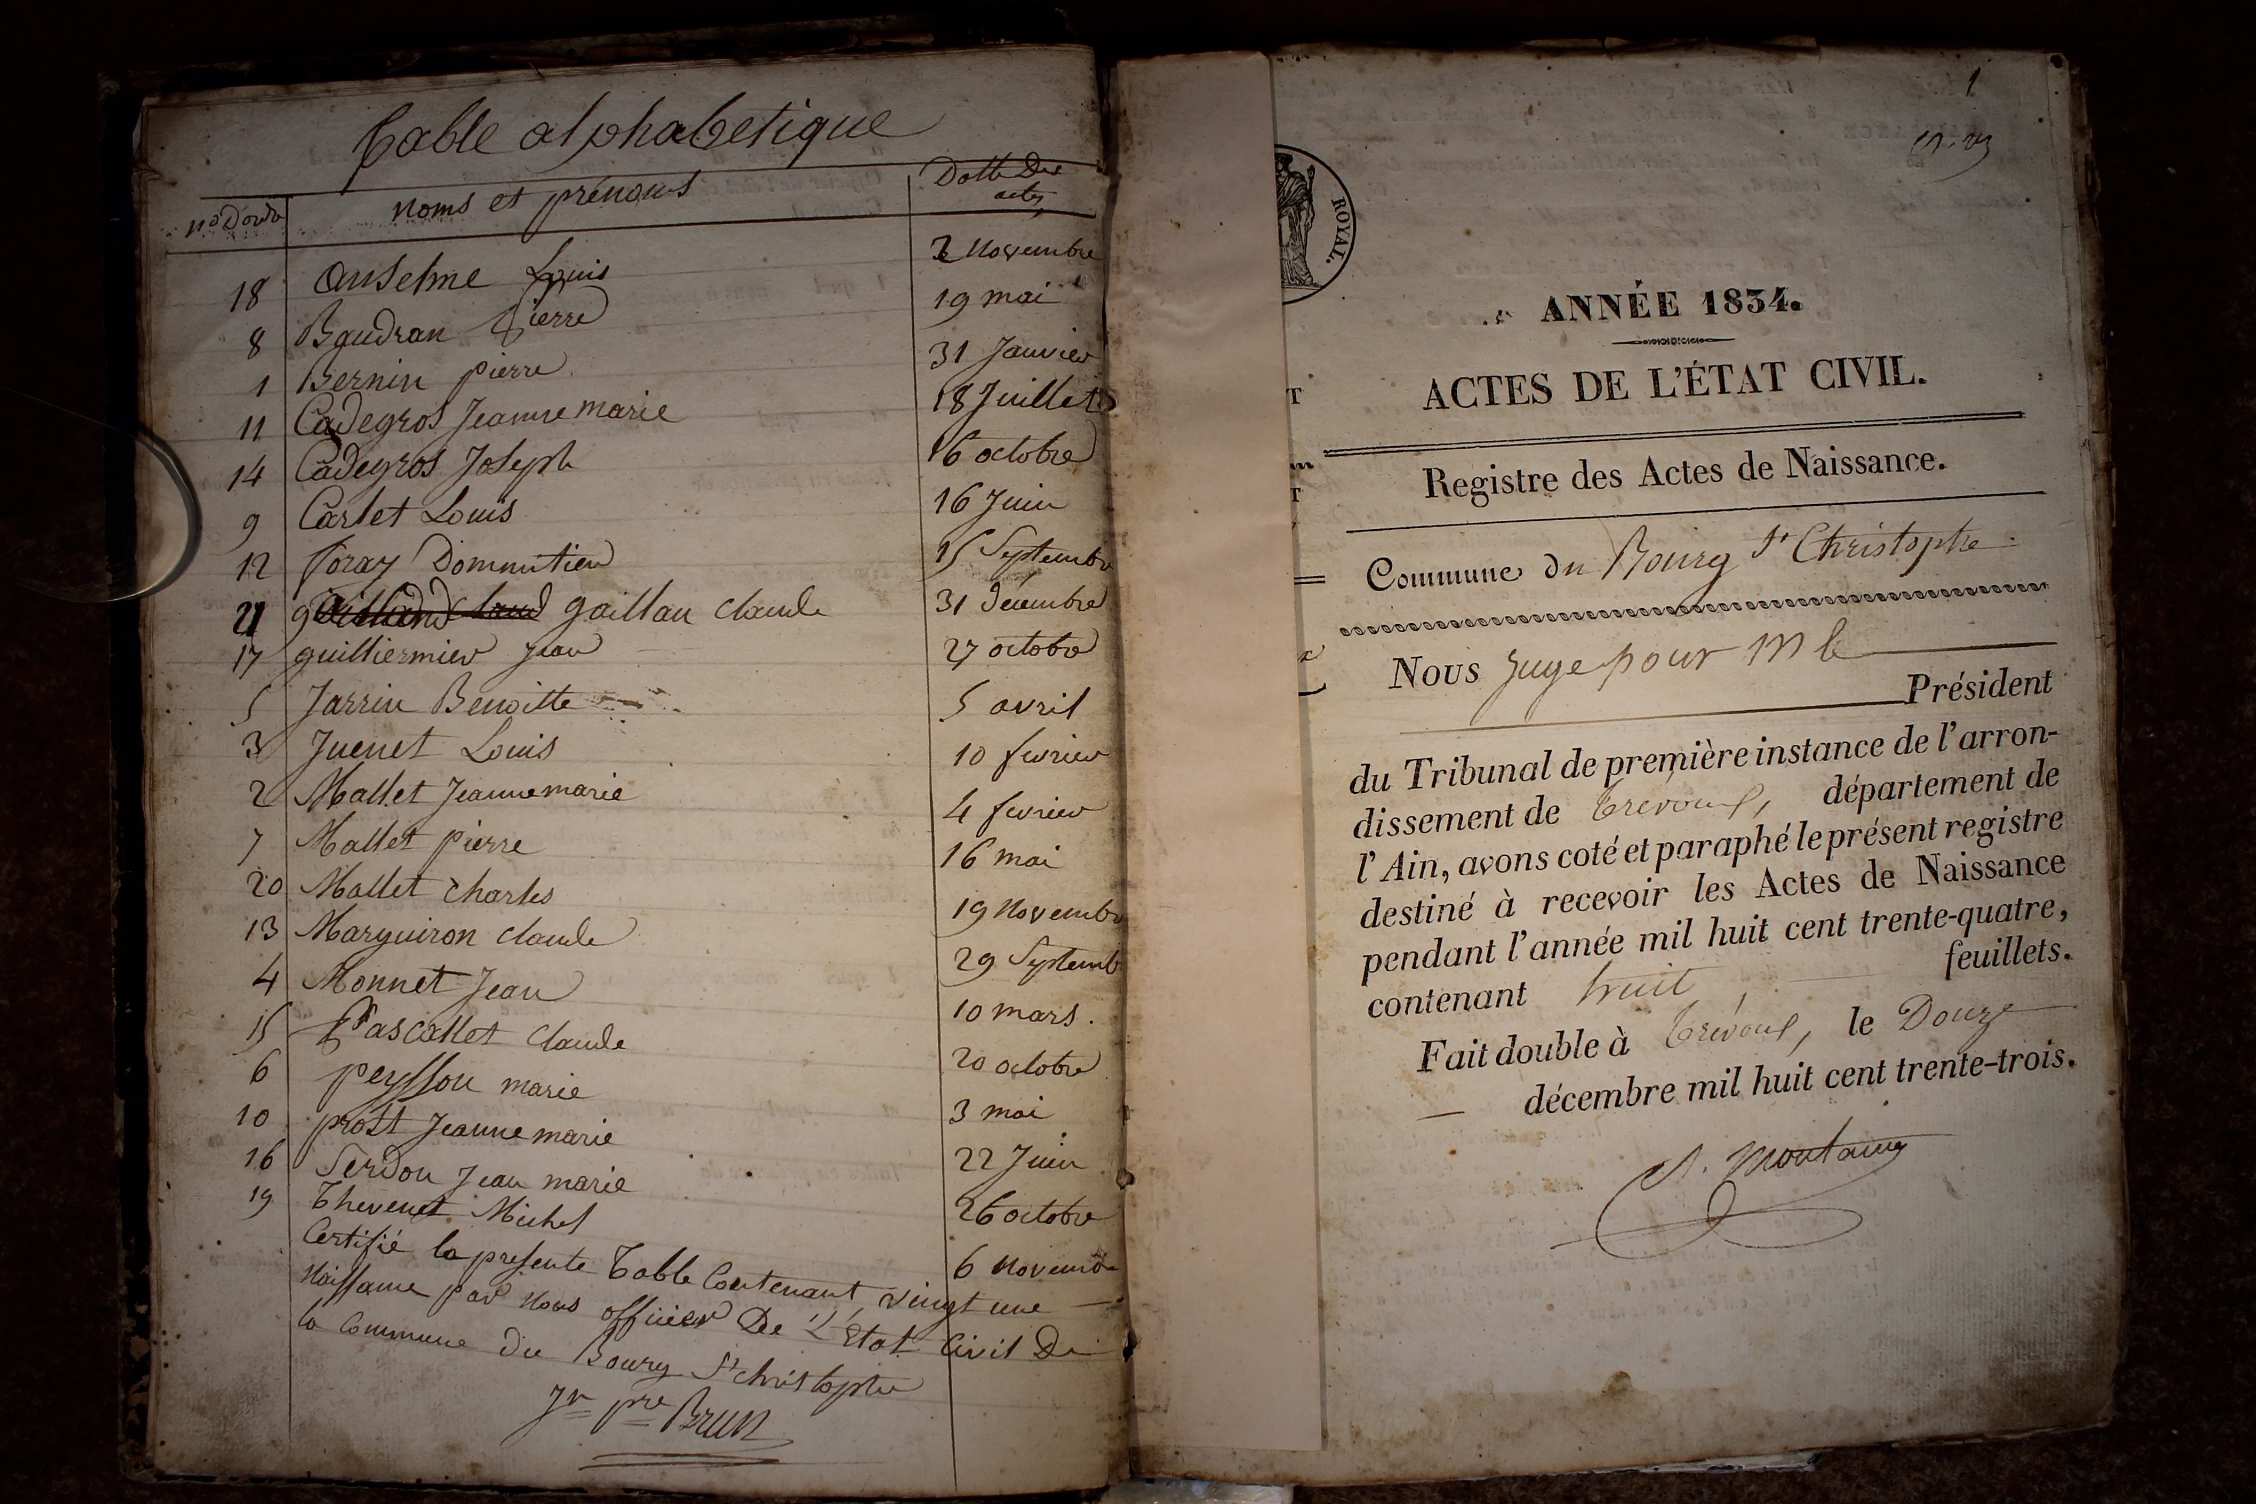 Table alphabetique
no D'ordre noms et prénoms Datte Des actes
18 Anselme Louis 2 Novembre
8 Baudran Pierre 19 mai
1 Bernin pierre 31 Janvier
11 Cadegros Jeanne marie 18 Juillet
14 Cadegros Joseph 16 octobre
9 Carlet Louis 16 Juin
12 foray Dominitien 15 Septembre
21 gaillan Claude 31 Décembre
17 guilliermier Jean 27 octobre
5 Jarrin Benoitte 5 avril
3 Juenet Louis 10 fevrier
2 Mallet Jeanne marie 4 fevrier
7 Mallet pierre 16 mai
20 Mallet charles 19 Novembre
13 Marguiron claude 29 Septemb
4 Monnet Jean 10 mars.
15 Pascallet Claude 20 octobre
6 peysson marie 3 mai
10 prost Jeanne marie 22 Juin
16 Serdon Jean marie 26 octobre
19 Thevenet Michel 6 Novembre
Certifié la presente Table Contenant vingt une
Naissance par Nous officier De L'Etat Civil De
la Commune du Bourg St christophe
Jn pre Brun
1
ROYAL.
ANNÉE 1834.
ACTES DE L'ÉTAT CIVIL.
Registre des Actes de Naissance.
Commune du Bourg St Christophe
Nous Juge pour M le
Président
du Tribunal de première instance de l'arron-
dissement de Trévoux, département de
l'Ain, avons coté et paraphé le présent registre
destiné à recevoir les Actes de Naissance
pendant l'année mil huit cent trente-quatre,
contenant huit feuillets.
Fait double à Trévoux, le Douze
décembre mil huit cent trente-trois.